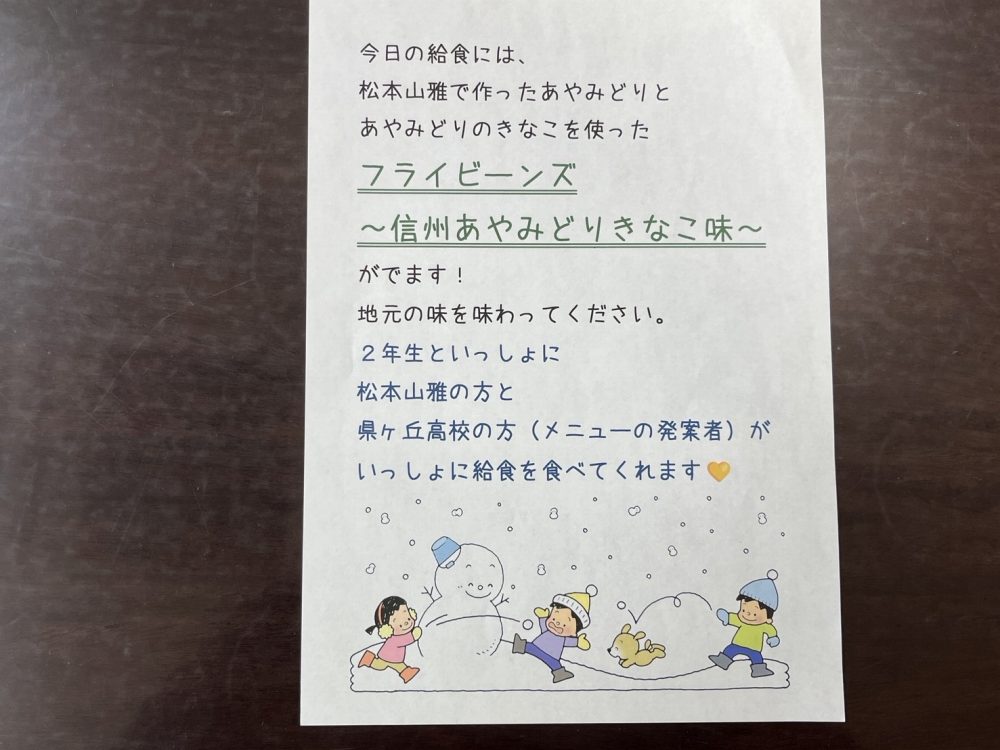 今日の給食には、
松本山雅で作ったあやみどりと
あやみどりのきなこを使った
フライビーンズ
～信州あやみどりきなこ味～
がでます！
地元の味を味わってください。
２年生といっしょに
松本山雅の方と
県ヶ丘高校の方（メニューの発案者）が
いっしょに給食を食べてくれます🧡